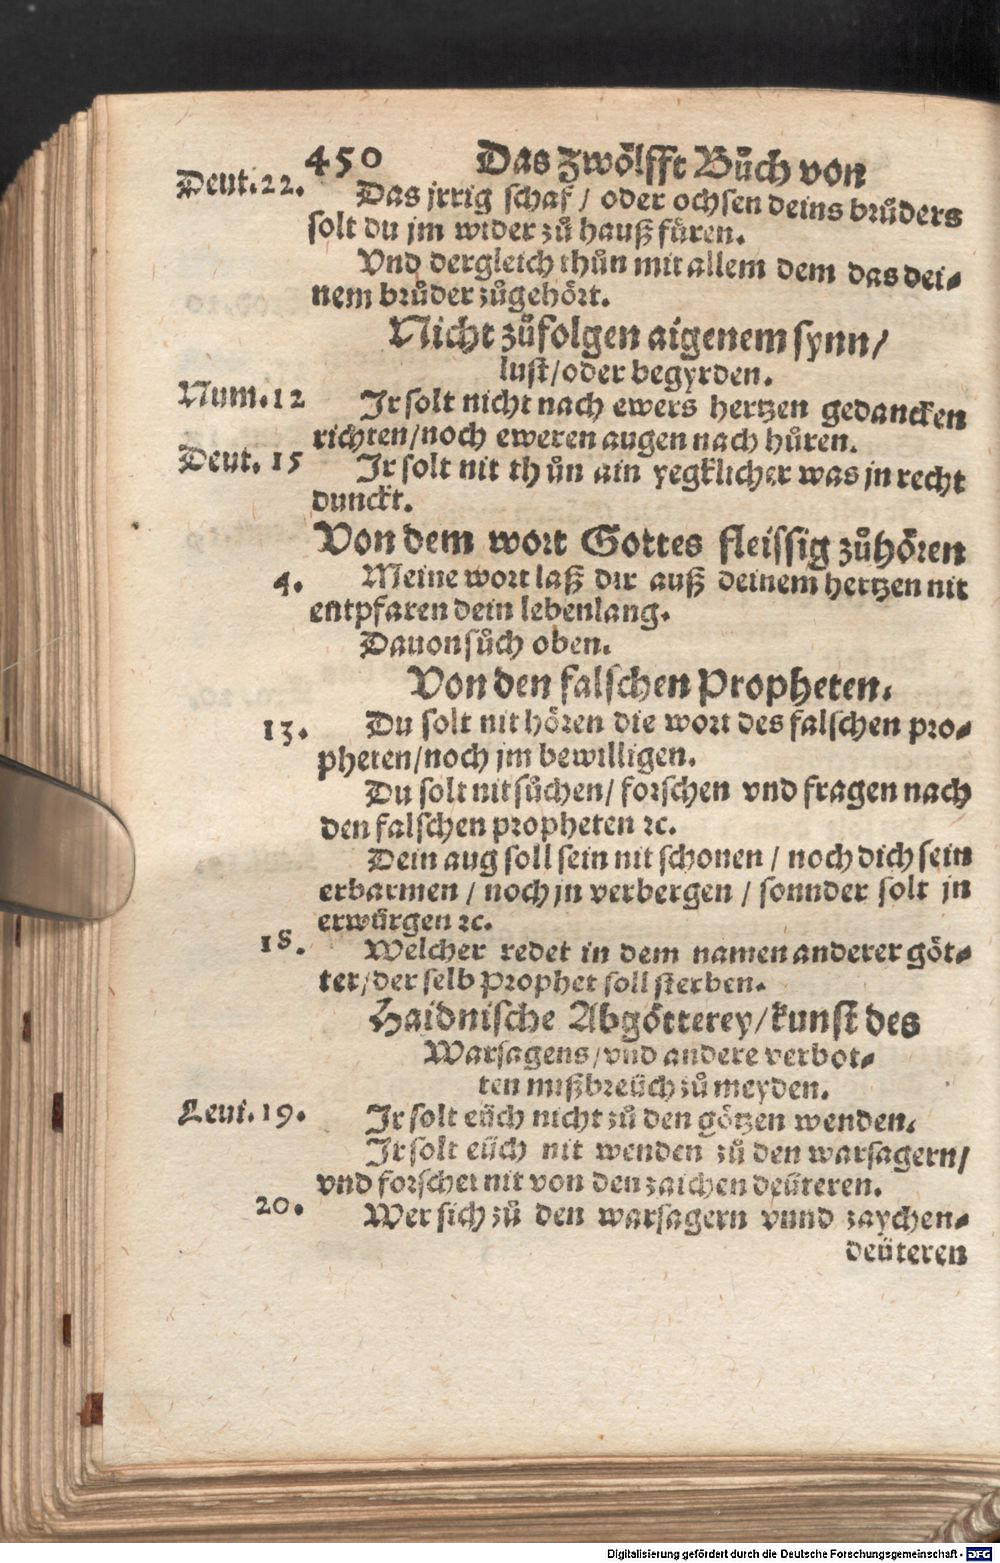 450 Das Zwölfft Bůch von
Deut.22. Das jrrig schaf / oder ochsen deins brůders
solt du jm wider zů hauß füren.
Vnd dergleich thůn mit allem dem das dei⸗
nem brůder zůgehört.
Nicht zůfolgen aigenem synn/
lust/oder begyrden.
Num.12 Ir solt nicht nach ewers hertzen gedancken
richten/noch eweren augen nach hůren.
Deut. 15 Ir solt nit thůn ain yegklicher was jn recht
dunckt.
Von dem wort Gottes fleissig zůhören
4. Meine wort laß dir auß deinem hertzen nit
entpfaren dein lebenlang.
Dauon sůch oben.
Von den falschen Propheten.
13. Du solt nit hören die wort des falschen pro⸗
pheten/noch jm bewilligen.
Du solt nit sůchen/ forschen vnd fragen nach
den falschen propheten ꝛc.
Dein aug soll sein nit schonen / noch dich sein
erbarmen / noch jn verbergen / sonnder solt jn
erwürgen ꝛc.
18. Welcher redet in dem namen anderer göt⸗
ter/der selb Prophet soll sterben.
Haidnische Abgötterey/kunst des
Warsagens/vnd andere verbot⸗
ten mißbreüch zů meyden.
Leui.19. Ir solt eüch nicht zů den götzen wenden.
Ir solt eüch nit wenden zů den warsagern/
vnd forschet nit von den zaichen deüteren.
20. Wer sich zů den warsagern vnnd zaychen⸗
deüteren
Digitalisierung gefördert durch die Deutsche Forschungsgemeinschaft - DFG